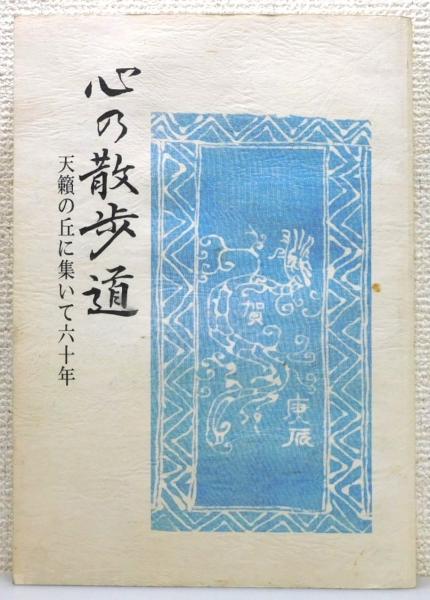 心の散歩道
天籟の丘に集いて六十年
賀
庚辰